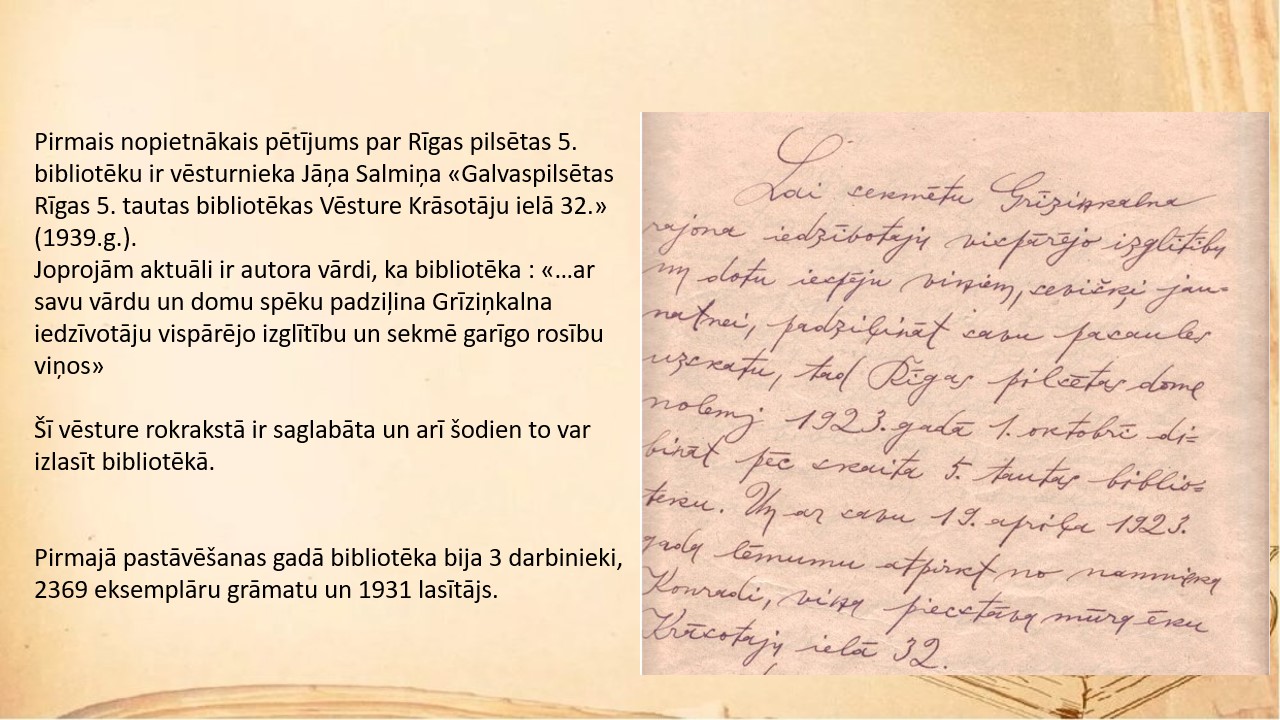 Pirmais nopietnākais pētījums par Rīgas pilsētas 5.
bibliotēku ir vēsturnieka Jāņa Salmiņa «Galvaspilsētas
Rīgas 5. tautas bibliotēkas Vēsture Krāsotāju ielā 32.»
(1939.g.).
Joprojām aktuāli ir autora vārdi, ka bibliotēka : «…ar
savu vārdu un domu spēku padziļina Grīziņkalna
iedzīvotāju vispārējo izglītību un sekmē garīgo rosību
viņos»
Šī vēsture rokrakstā ir saglabāta un arī šodien to var
izlasīt bibliotēkā.
Pirmajā pastāvēšanas gadā bibliotēka bija 3 darbinieki,
2369 eksemplāru grāmatu un 1931 lasītājs.
Lai sekmētu Grīziņkalna
rajona iedzībotajų vispārējo izglītību
uņ dotu iespēju viņiem, sevišķi jau=
natnei, padziļināt savu pasaules
uzskatu, tad Rīgas pilsētas dome
nolemj 1923. gadā 1. oktobrī di=
bināt pēc skaita 5. tautas biblio=
teku. Uņ ar savu 19. apriļa 1923.
gada lēmumu atpirkt no namnieka
Konradi, viņa piecstāvų mūra ēku
Krāsotajų ielā 32.